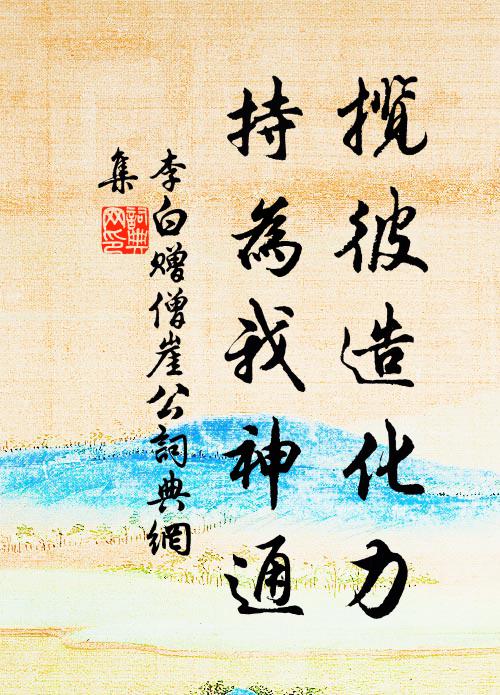 攬彼造化力
持為我神通
李白赠僧崖公詞典網
集
詞典
网印